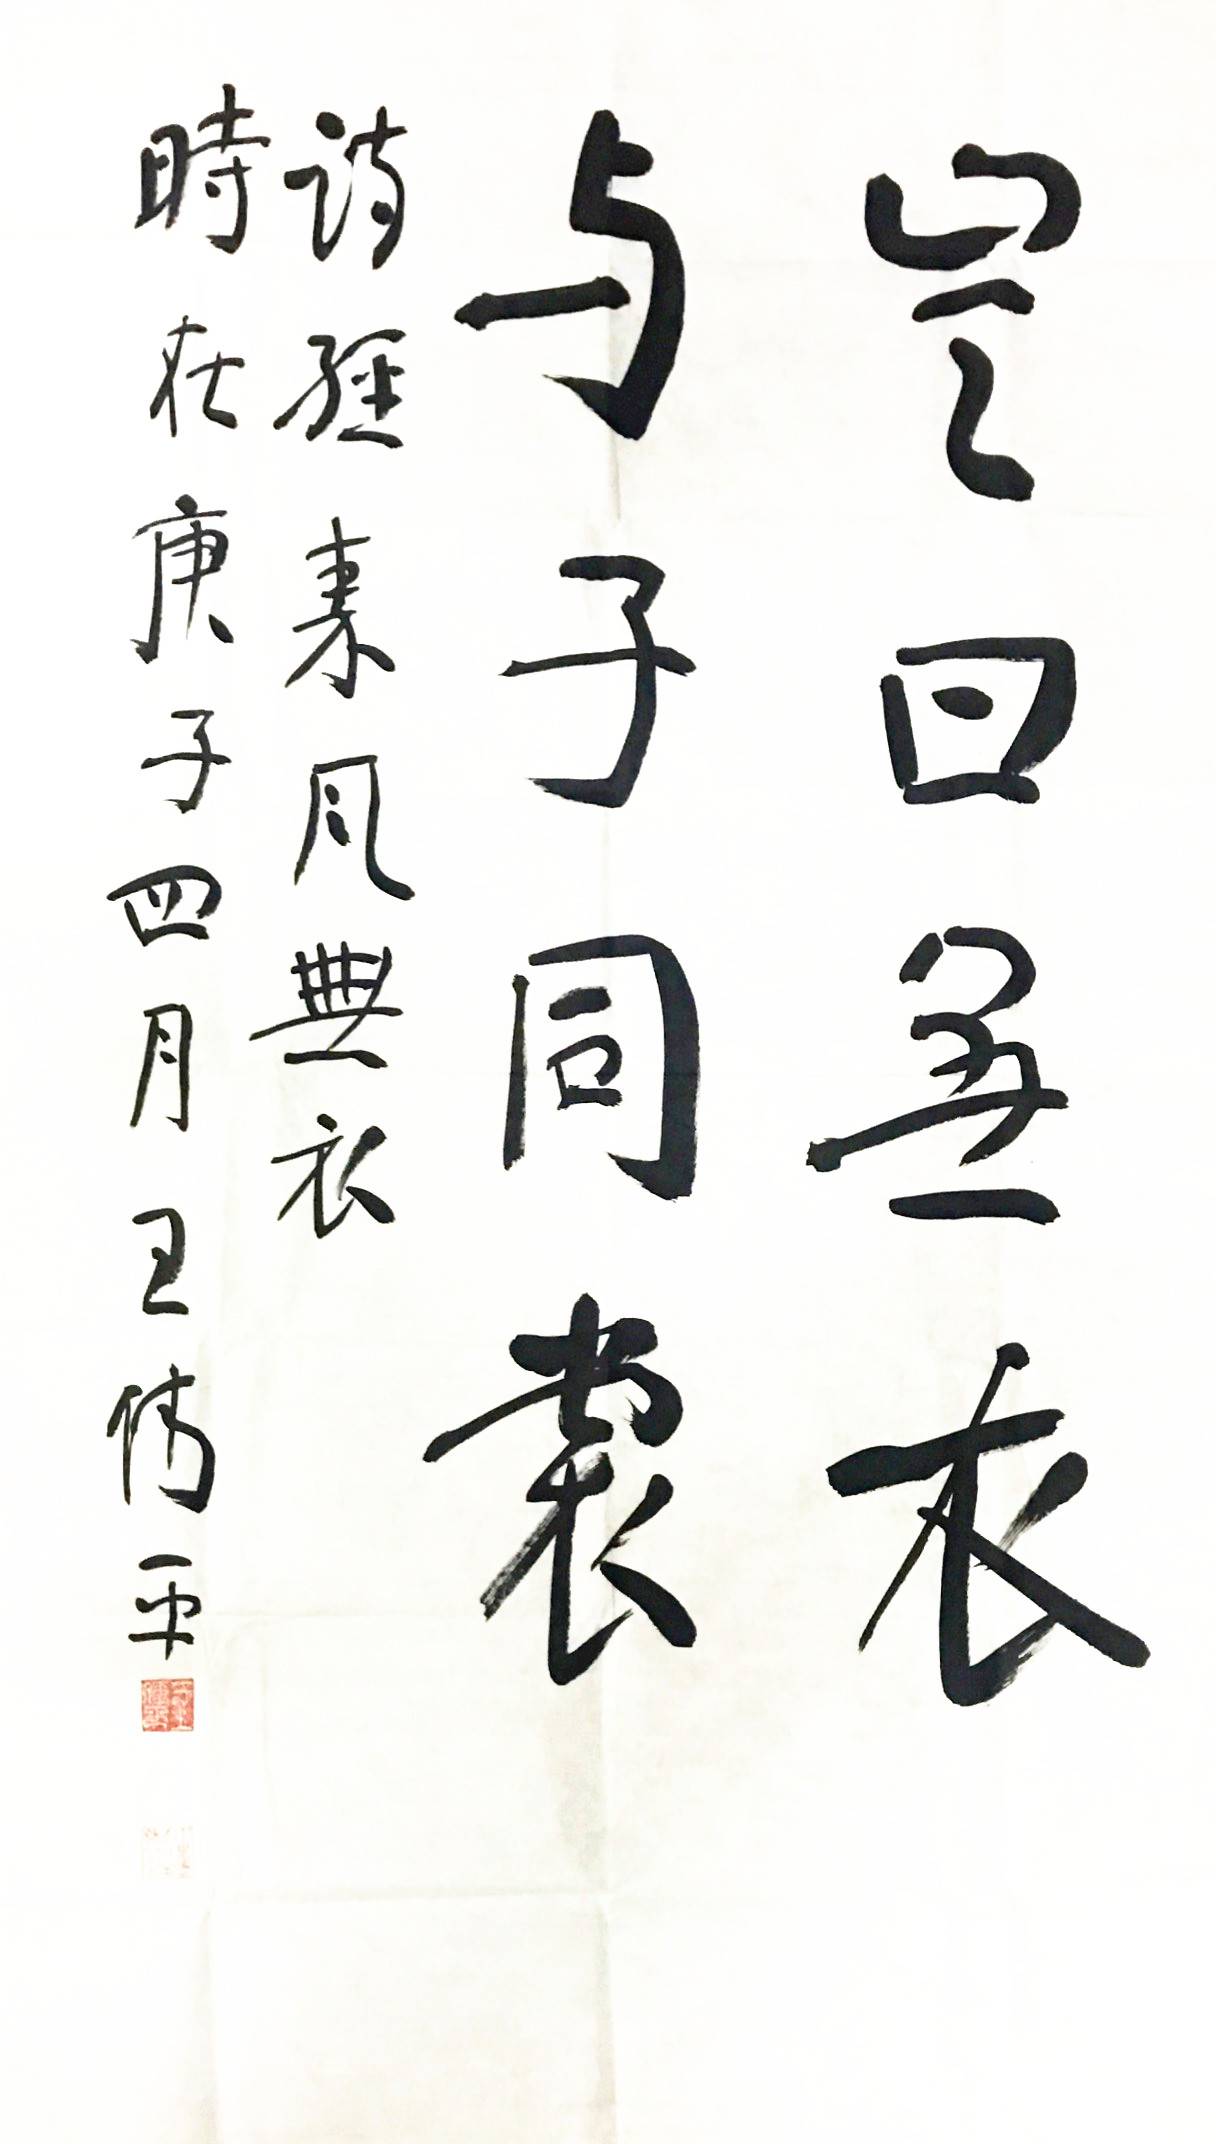 岂曰無衣
与子同裳
詩經秦风無衣
時在庚子四月王倩平